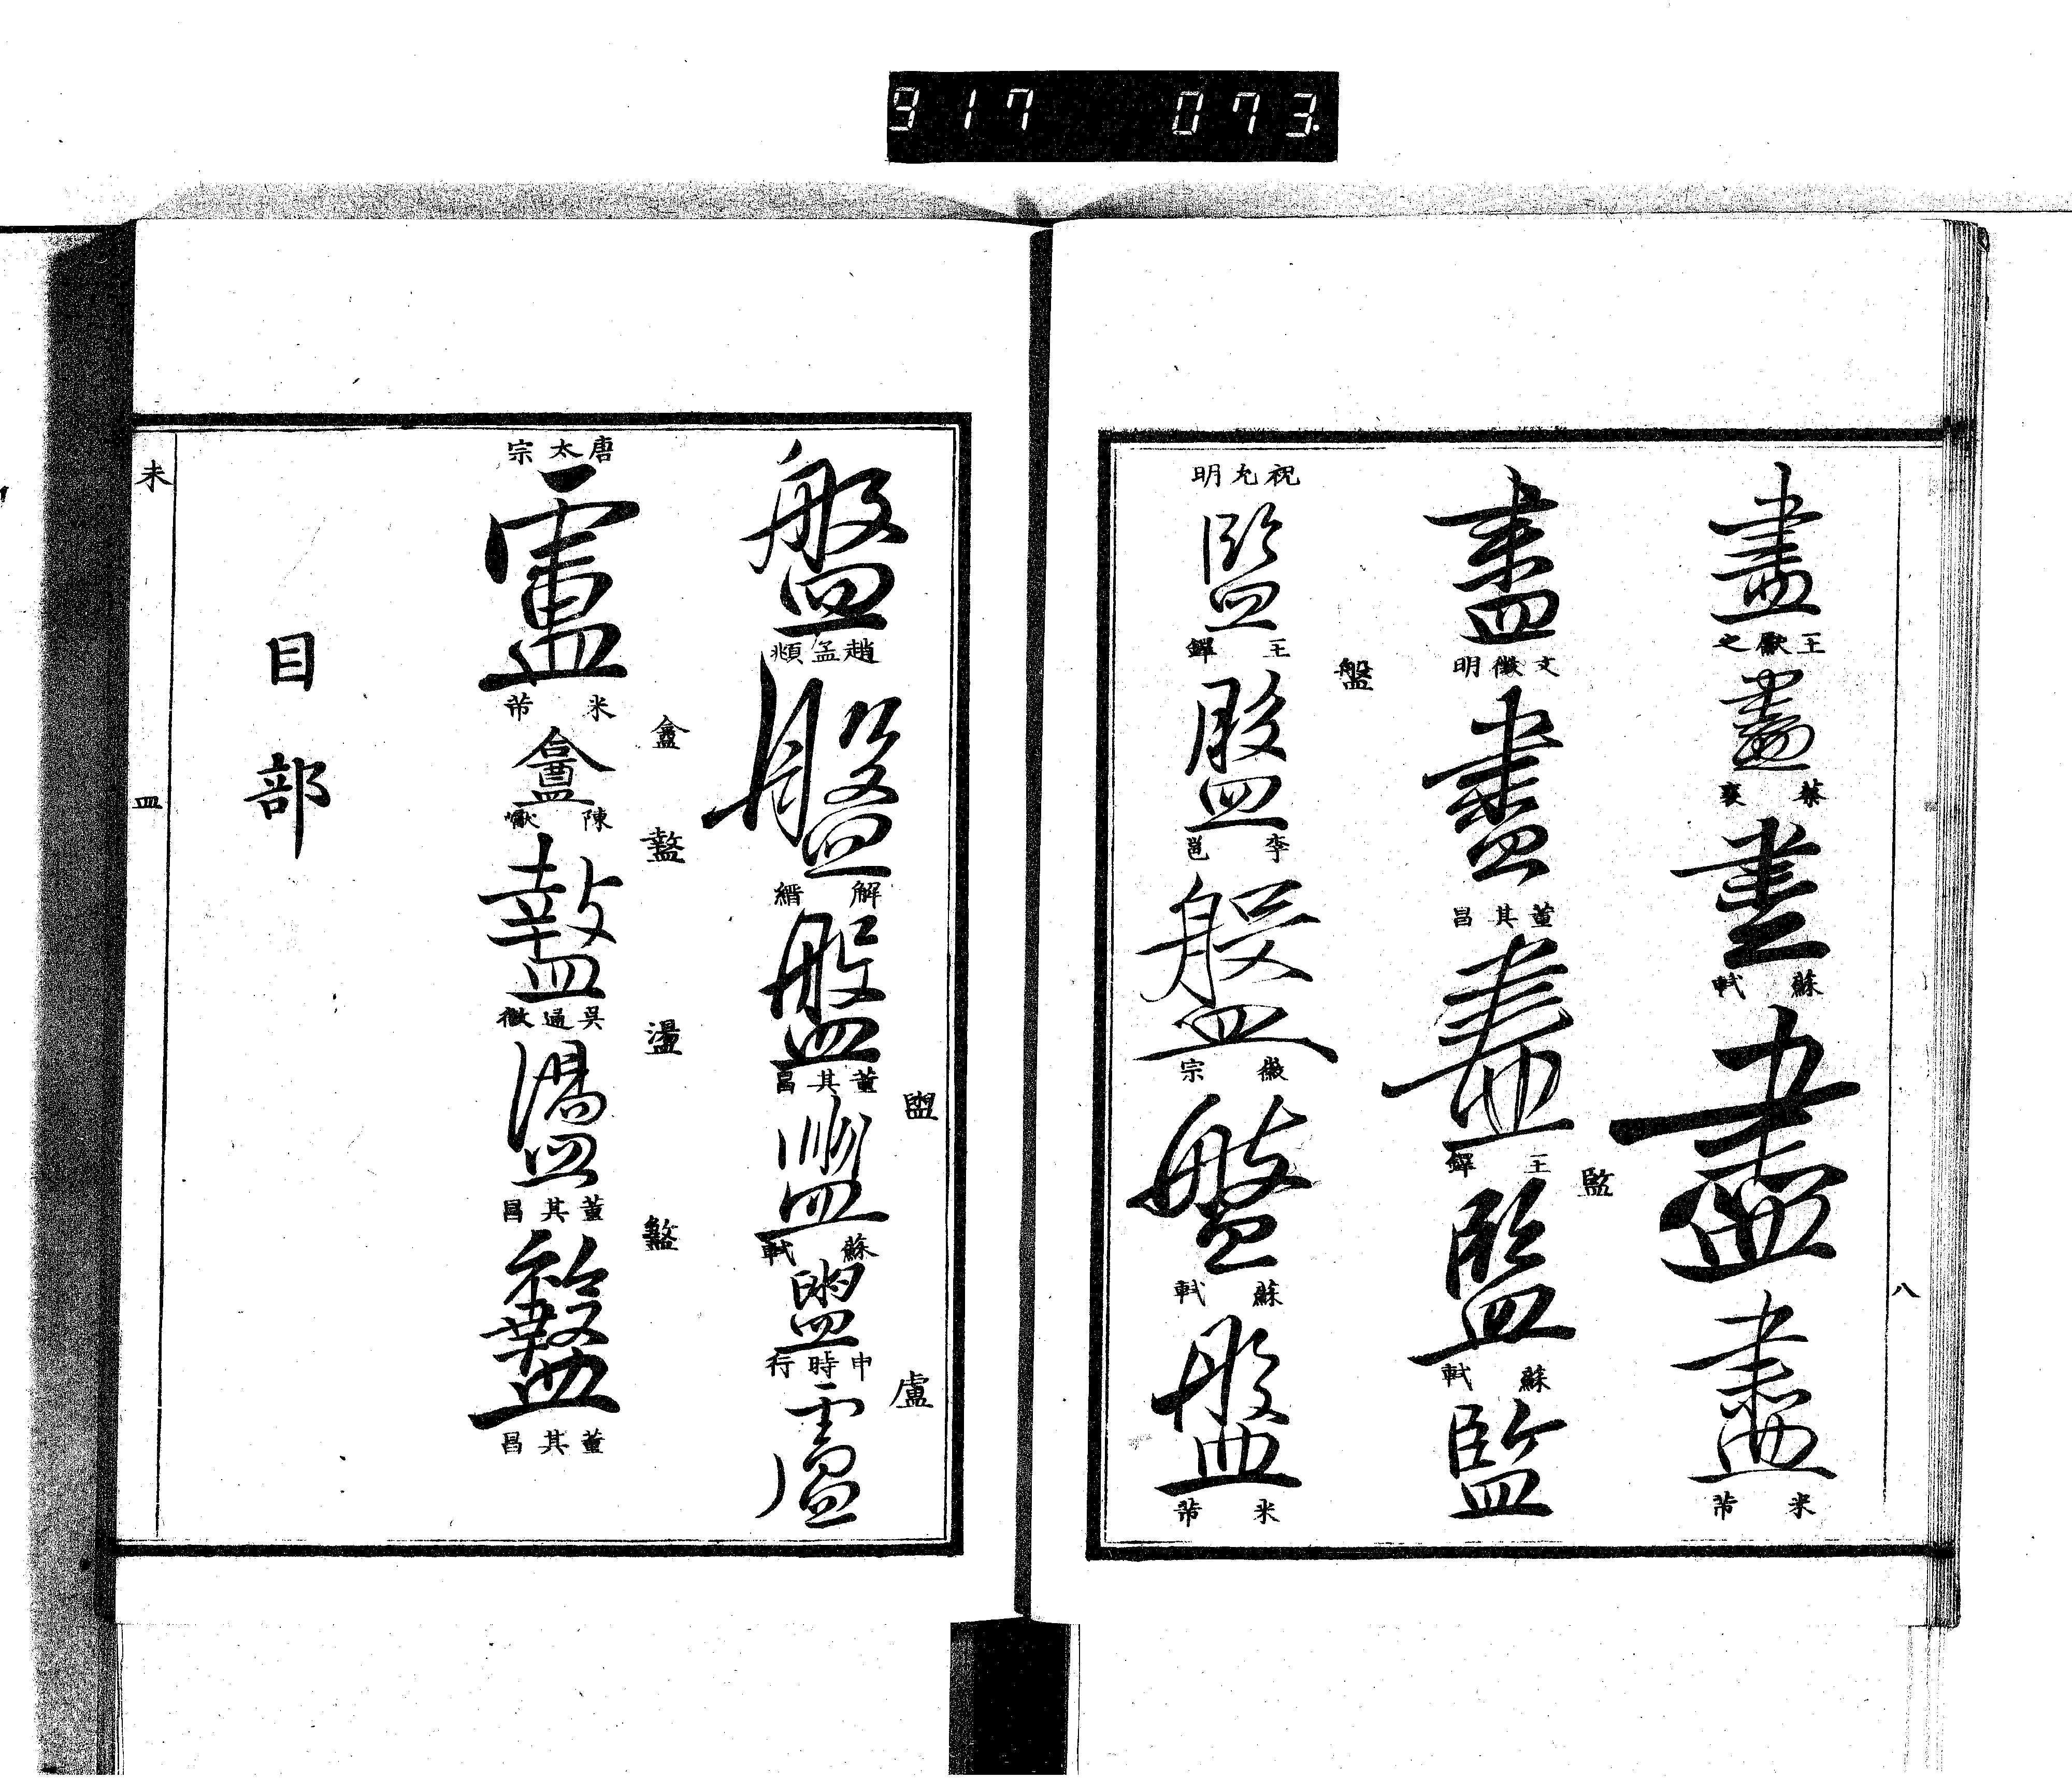 917 073.
八
盡 王獻之 盡 蔡襄 盡 蘇軾 盡 盡 米芾
盡 文徵明 盡 董其昌 盡 王鐸 監 監 蘇軾 監
祝允明 監 王鐸 盤 盤 李邕 盤 徽宗 盤 蘇軾 盤 米芾
盤 趙孟頫 盤 解縉 盤 董其昌 盟 盟 蘇軾 盟 申時行 盧 盧
唐太宗 盧 米芾 盒 盒 陳 盩 盩 吳通微 盪 盪 董其昌 盭 董其昌
目部
未 皿